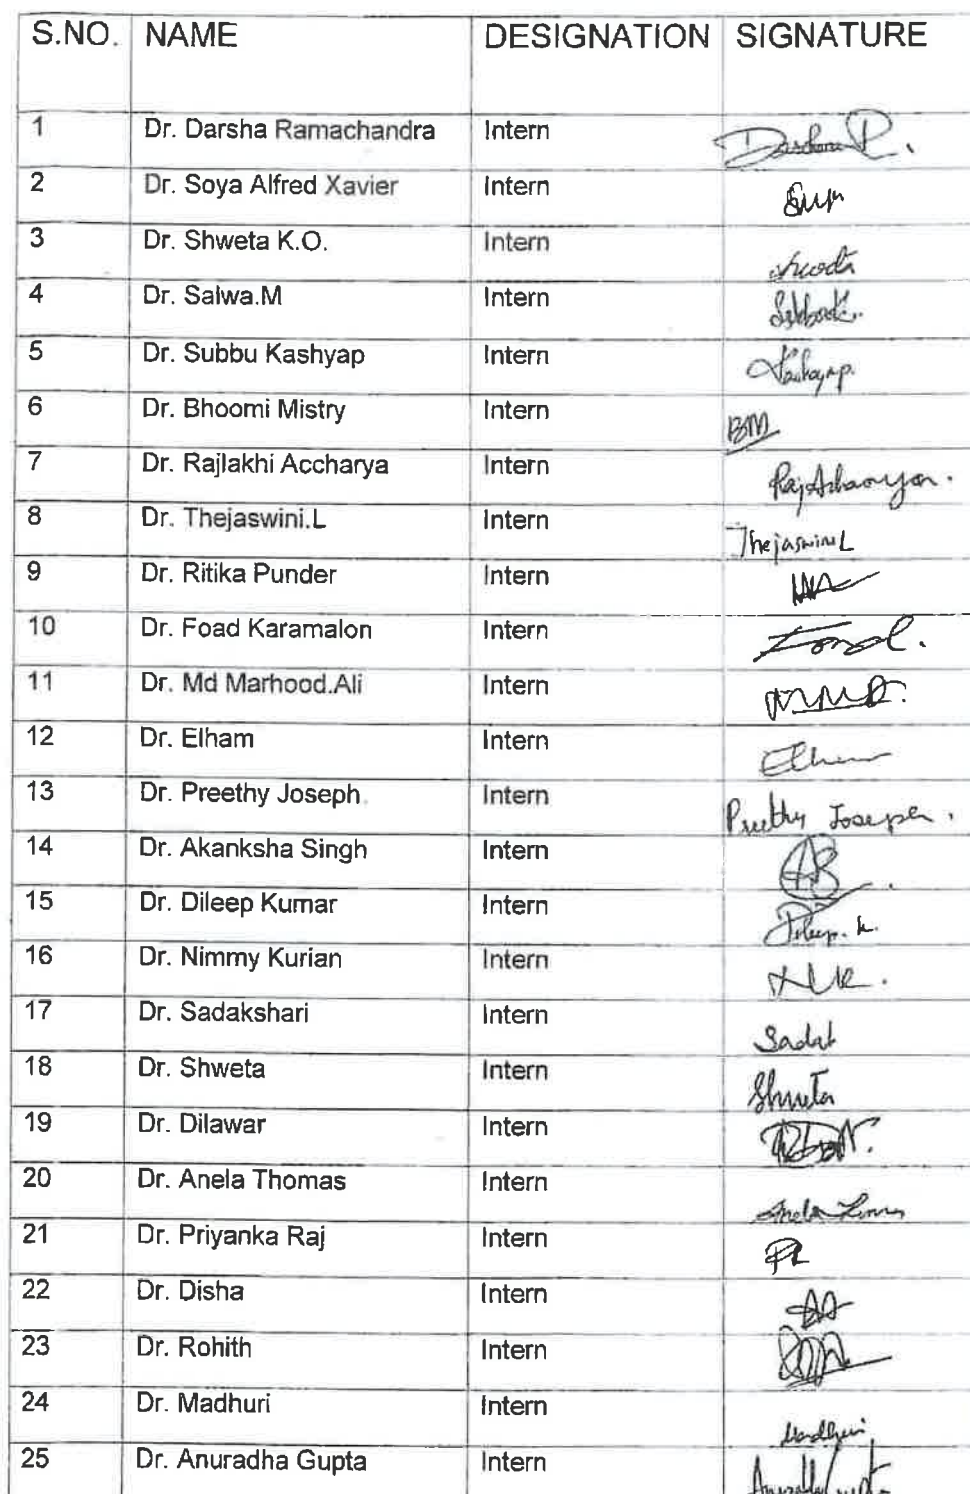 S.NO. NAME DESIGNATION SIGNATURE
1 Dr. Darsha Ramachandra Intern
2 Dr. Soya Alfred Xavier Intern
3 Dr. Shweta K.O. Intern
4 Dr. Salwa.M Intern
5 Dr. Subbu Kashyap Intern Kashyap.
6 Dr. Bhoomi Mistry Intern BM
7 Dr. Rajlakhi Accharya Intern
8 Dr. Thejaswini.L Intern Thejaswini L
9 Dr. Ritika Punder Intern
10 Dr. Foad Karamalon Intern
11 Dr. Md Marhood.Ali Intern
12 Dr. Elham Intern
13 Dr. Preethy Joseph Intern Preethy Joseph.
14 Dr. Akanksha Singh Intern
15 Dr. Dileep Kumar Intern Dileep. K.
16 Dr. Nimmy Kurian Intern
17 Dr. Sadakshari Intern
18 Dr. Shweta Intern Shweta
19 Dr. Dilawar Intern
20 Dr. Anela Thomas Intern
21 Dr. Priyanka Raj Intern
22 Dr. Disha Intern
23 Dr. Rohith Intern
24 Dr. Madhuri Intern Madhuri
25 Dr. Anuradha Gupta Intern